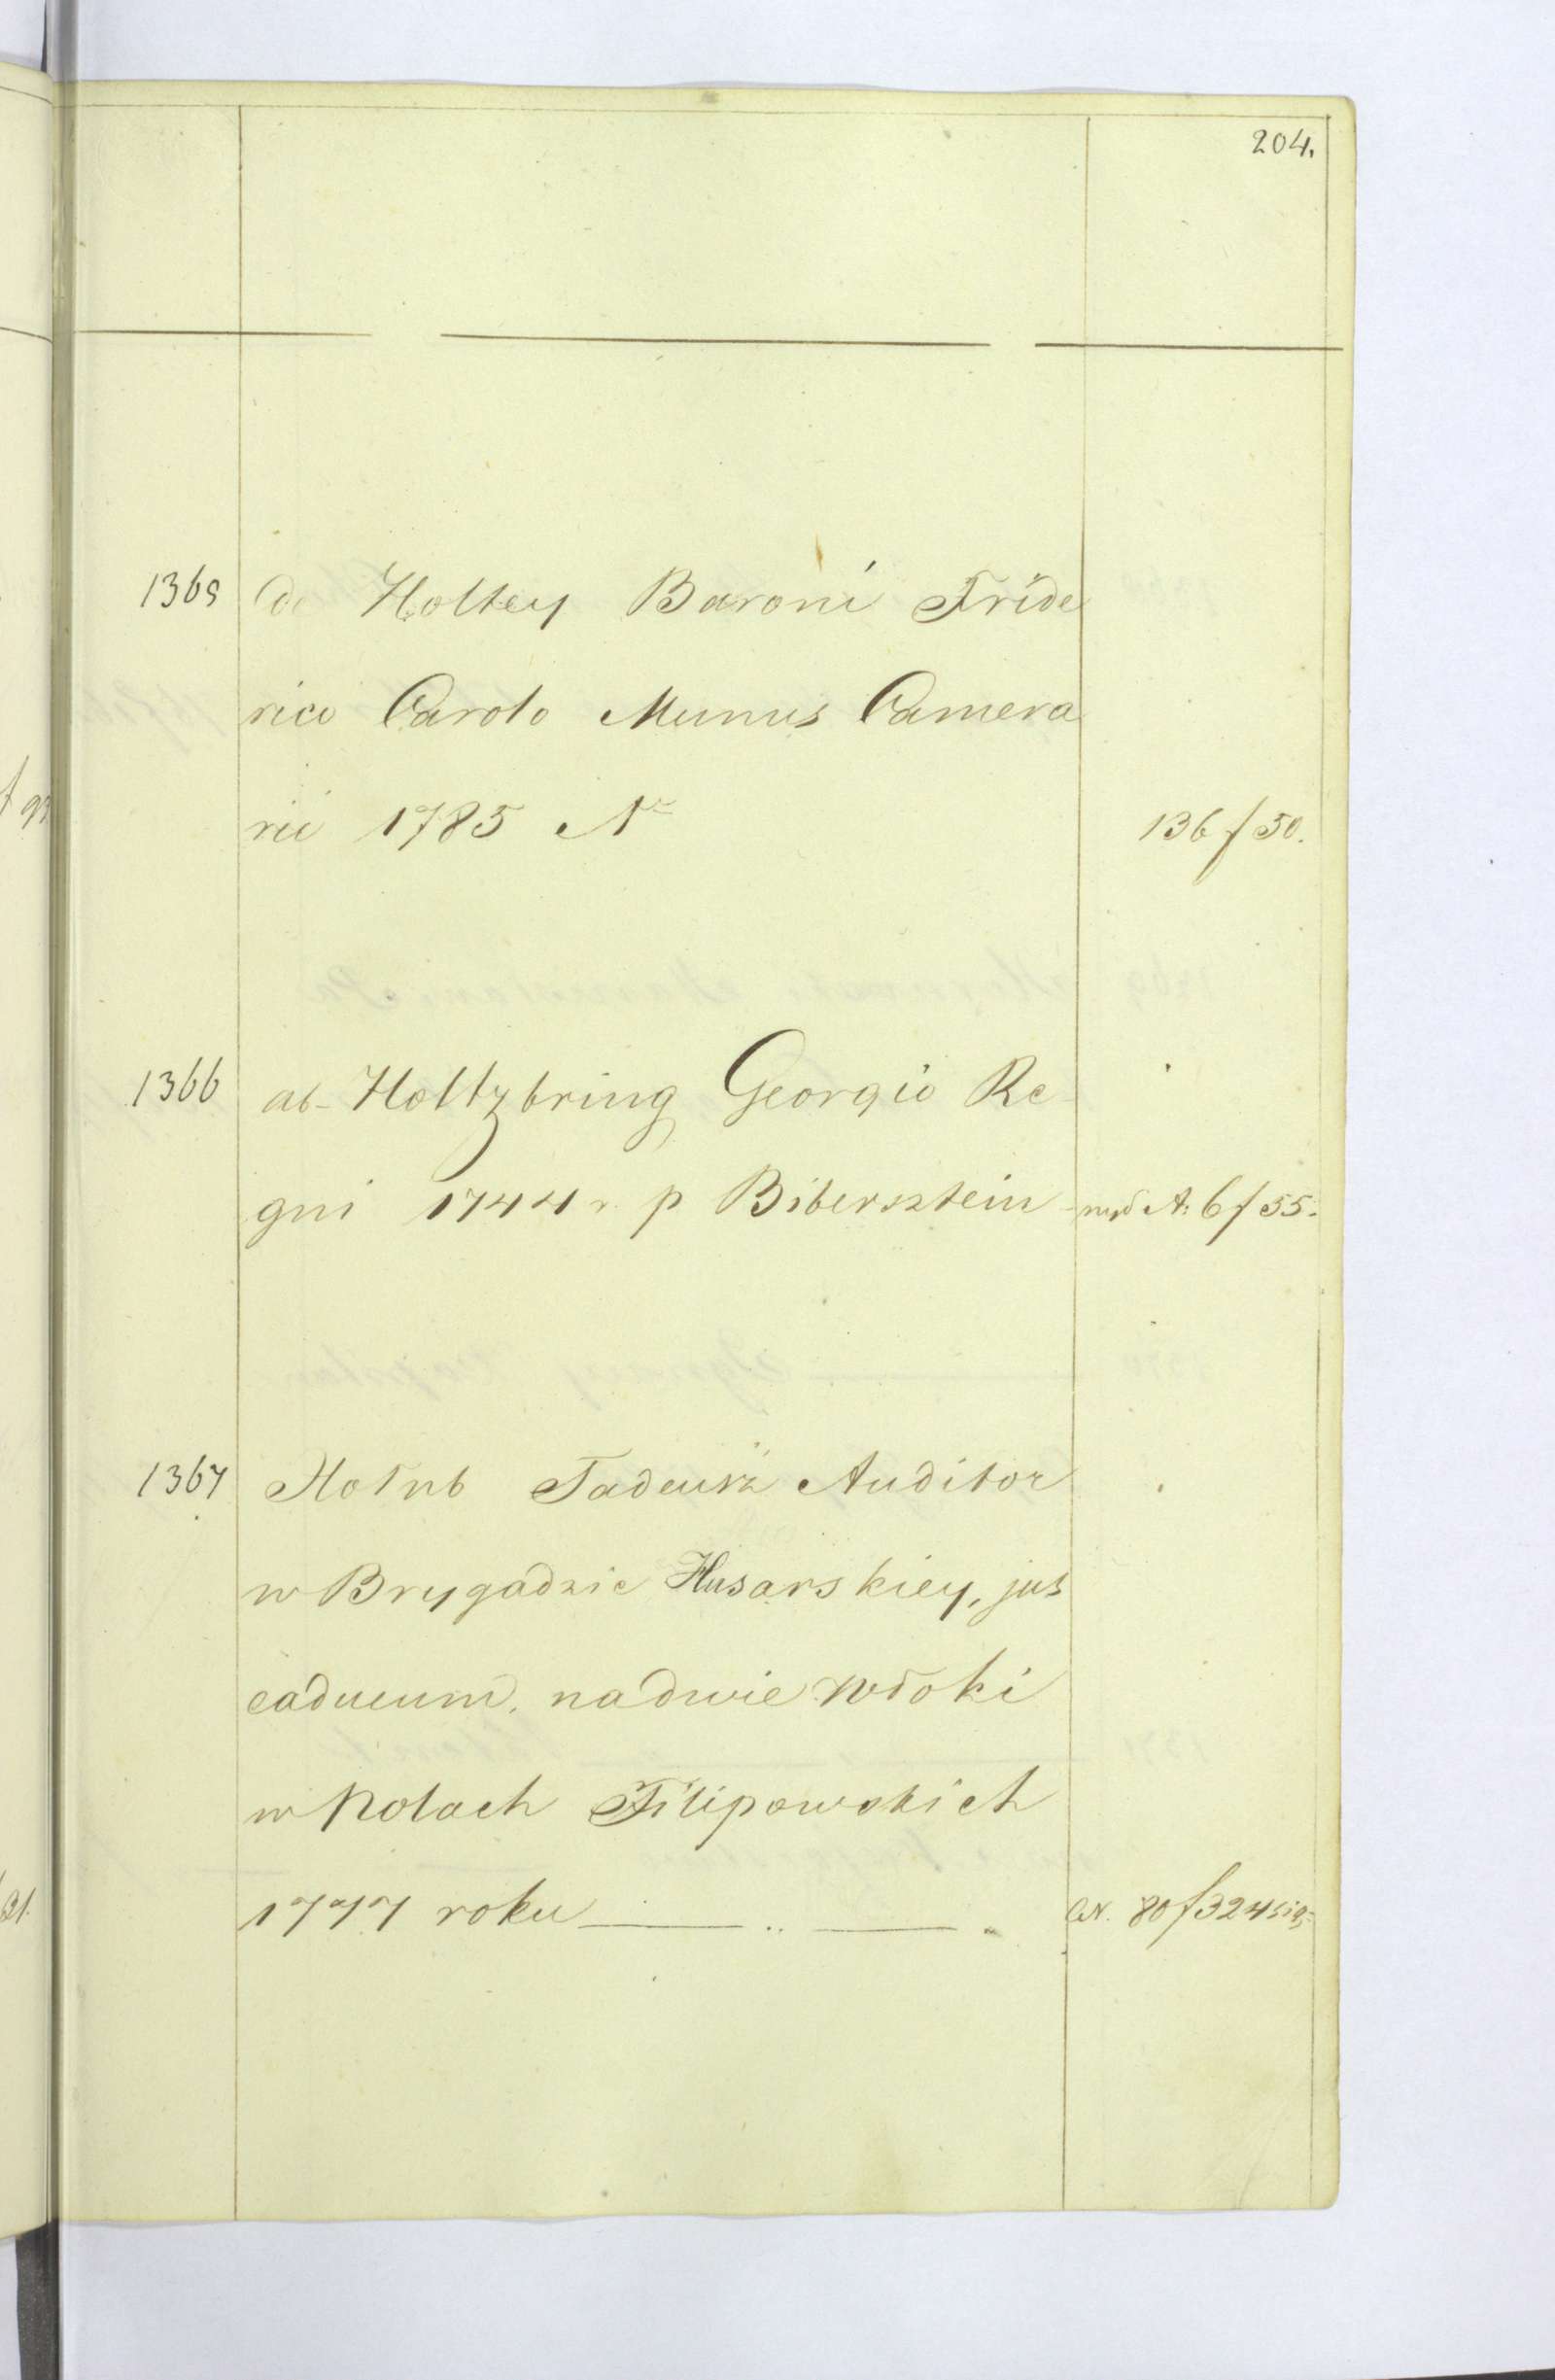 204.
1365 de Holtey Baroni Fride
rico Carolo Munus Camera
rii 1785 Nr 136 f 50.
1366 ab- Holtzbring Georgio Re-
gni 1744 r. p Bibersztein A: 6 f 55.
1367 Hołub Tadeusz Auditor
w Brygadzie Husarskiey, jus
caducum, na dwie włoki
w Polach Filipowskich
1777 roku N. 80 f 324 sig.